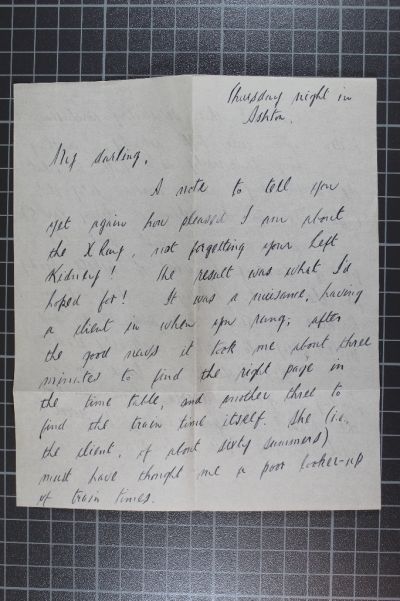 Thursday night in
Ashton.
My darling,
A note to tell you
yet again how pleased I am about
the X Ray, not forgetting your Left
Kidney! The result was what I'd
hoped for! It was a nuisance, having
a client in when you rang; after
the good news it took me about three
minutes to find the right page in
the time table, and another three to
find the train time itself. She (i.e.
the client, of about sixty summers)
must have thought me a poor looker-up
of train times.